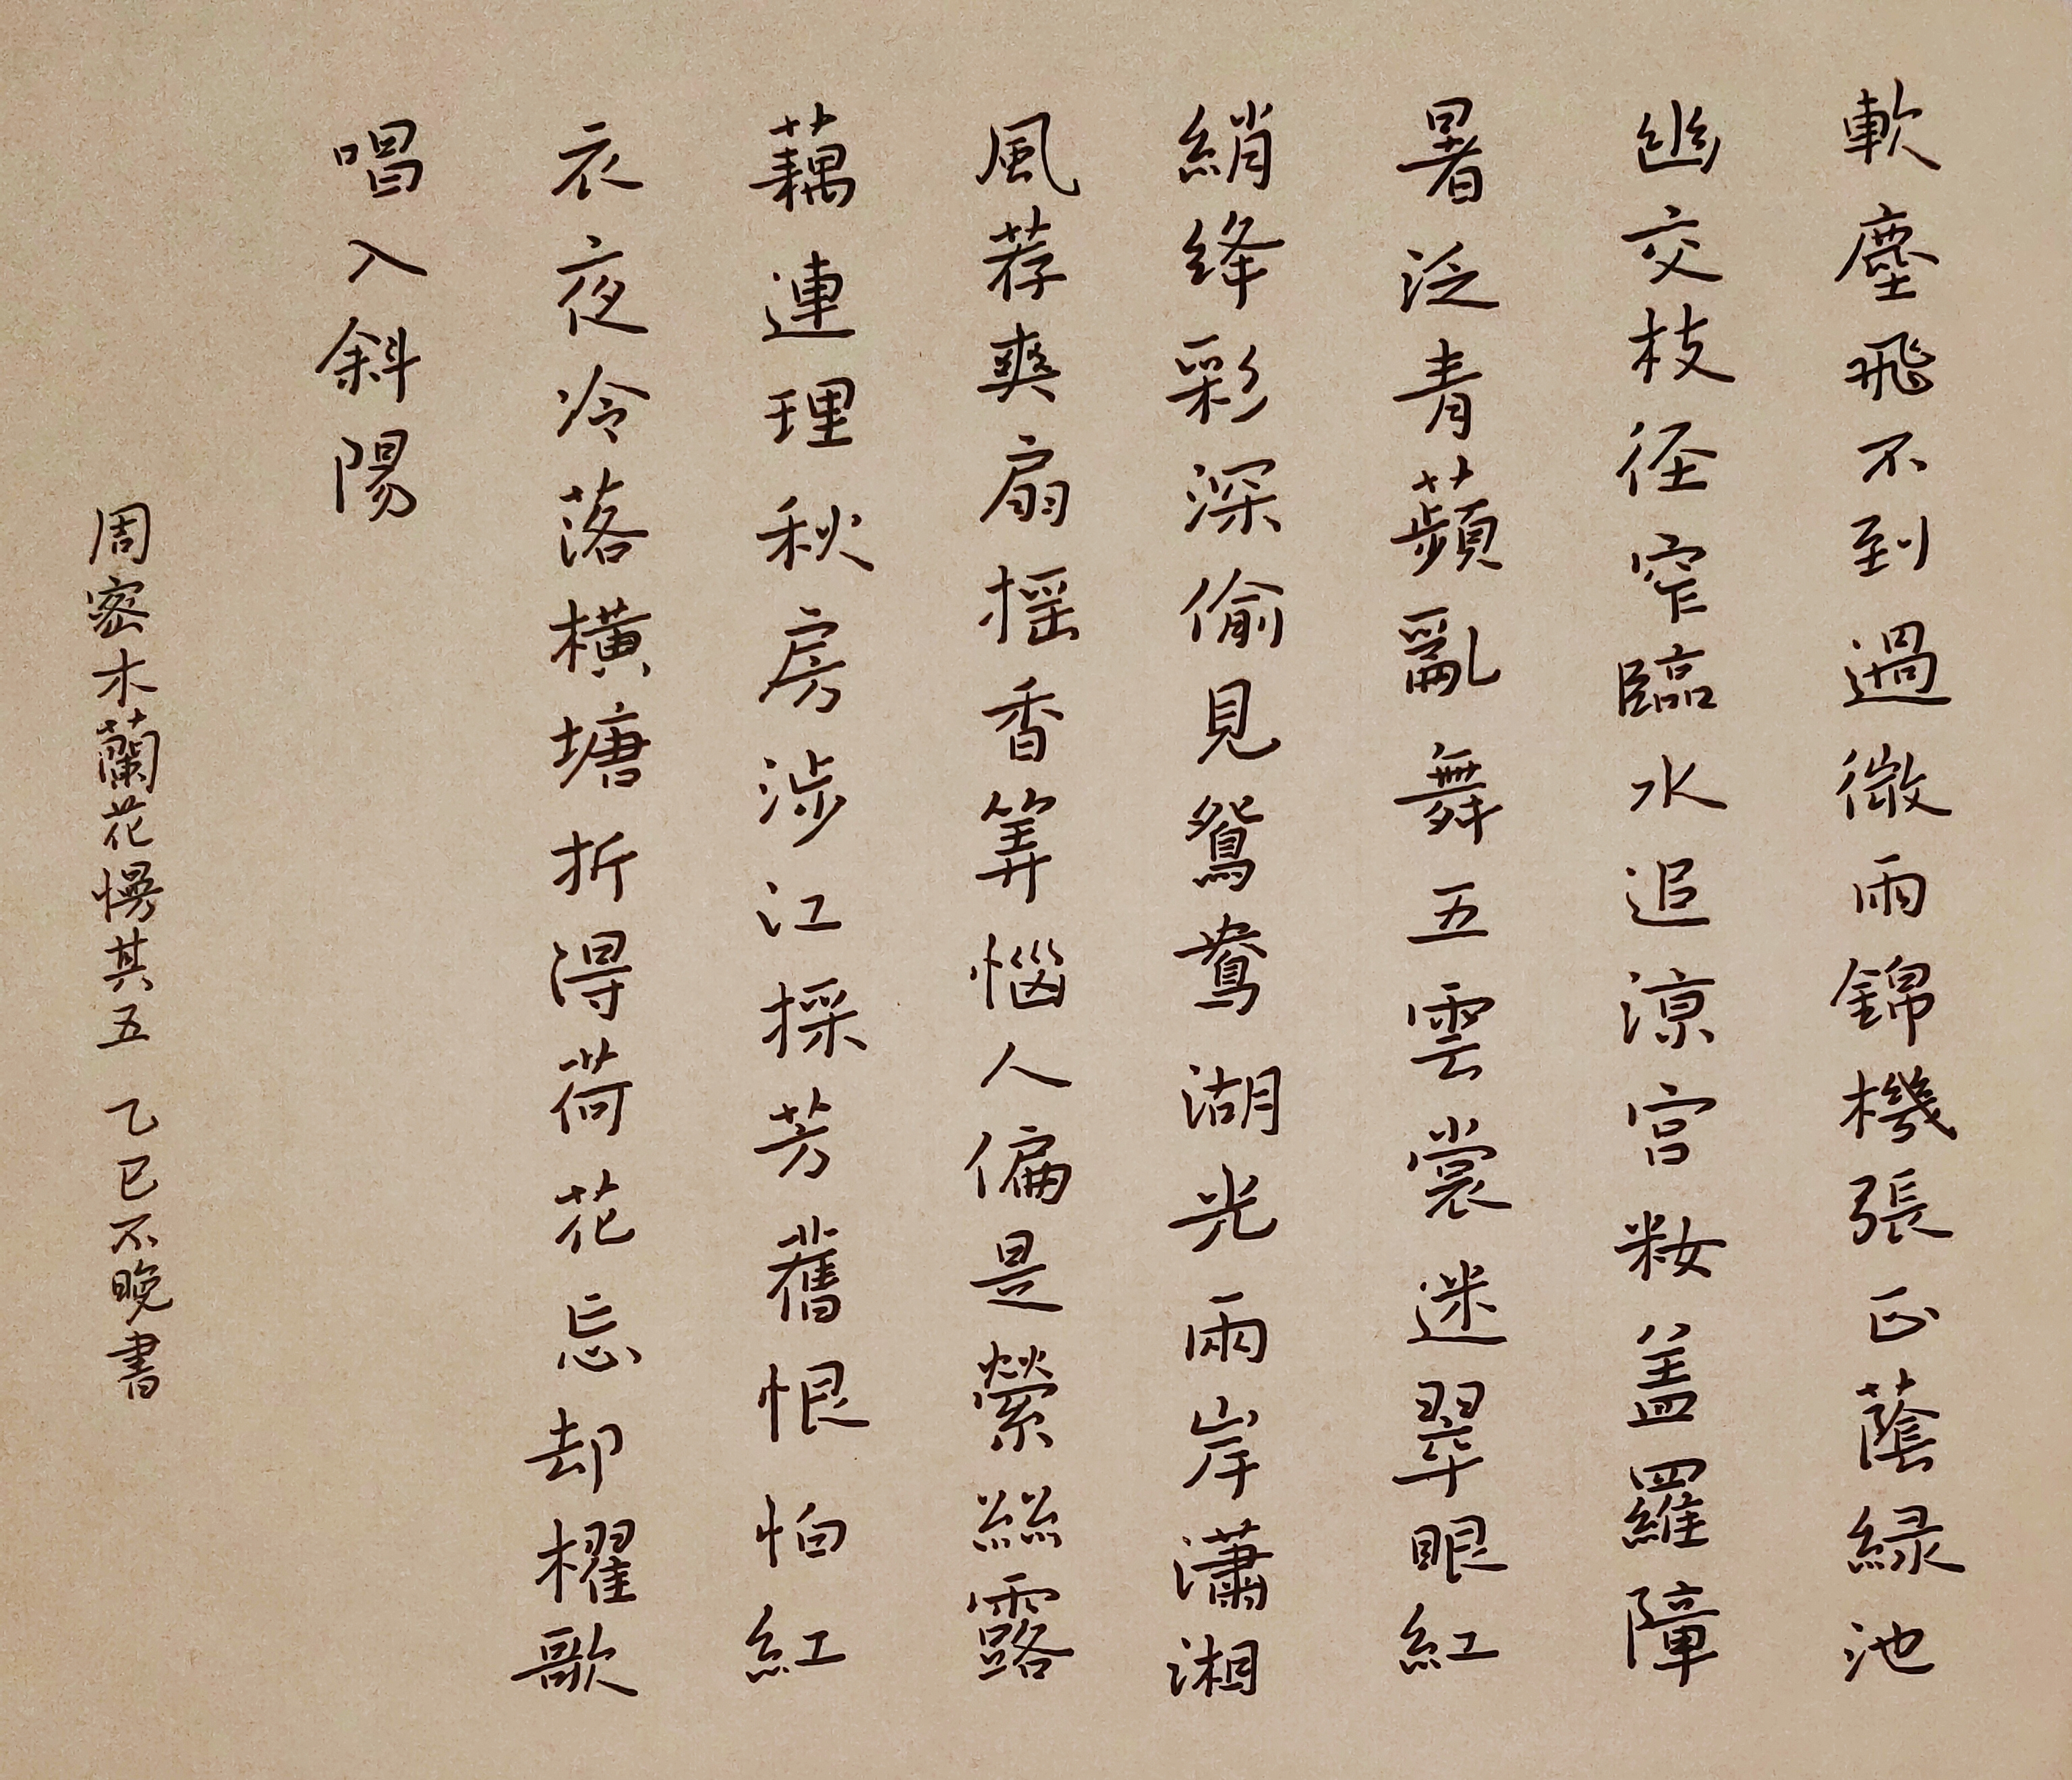 軟塵飛不到過微雨錦機張正蔭綠池
幽交枝徑窄臨水追涼宮妝蓋羅障
暑泛青蘋亂舞五雲裳迷翠眼紅
綃絳彩深偷見鴛鴦湖光雨岸瀟湘
風荐爽扇搖香筭惱人偏是縈絲露
藕連理秋房涉江採芳舊恨怕紅
衣夜冷落橫塘折得荷花忘却櫂歌
唱入斜陽
周密木蘭花慢其五 乙巳不晚書